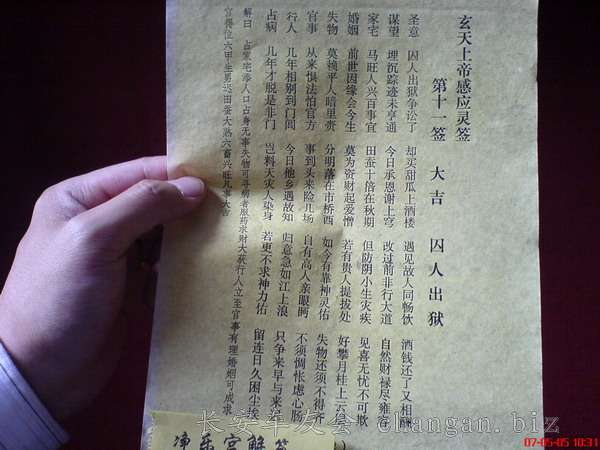 玄天上帝感应灵签
第十一签 大吉 囚人出狱
圣意 囚人出狱争讼了 却买甜瓜上酒楼 遇见故人同畅饮 酒钱还了又相酬
谋望 埋沉踪迹未亨通 今日承恩谢上穹 改过前非行大道 自然财禄尽雍容
家宅 马旺人兴百事宜 田蚕十倍在秋期 但防阴小生灾疾 见喜无忧不可欺
婚姻 前世因缘会今生 莫为资财起爱憎 若有贵人提拔处 好攀月桂上云梯
失物 莫赖平人暗里赍 分明落在市桥西 如今有靠神灵佑 失物还须不得齐
官事 从来惧法怕官方 事到头来险几场 自有高人亲眼眄 不须惆怅虑心肠
行人 几年相别到门闾 今日他乡遇故知 归意急如江上浪 只争来早与来
占病 几年才脱是非门 岂料天灾人染身 若更不求神力佑 留连日久困尘埃
解曰 占家宅添人口占身无事失物可寻病者服药求财大获行人立至官事有理婚姻可成求
官得位六甲生男迟田蚕大熟六畜兴旺凡事大吉
净乐宫解签
长安车友会 changan.biz
07-05-05 10:31